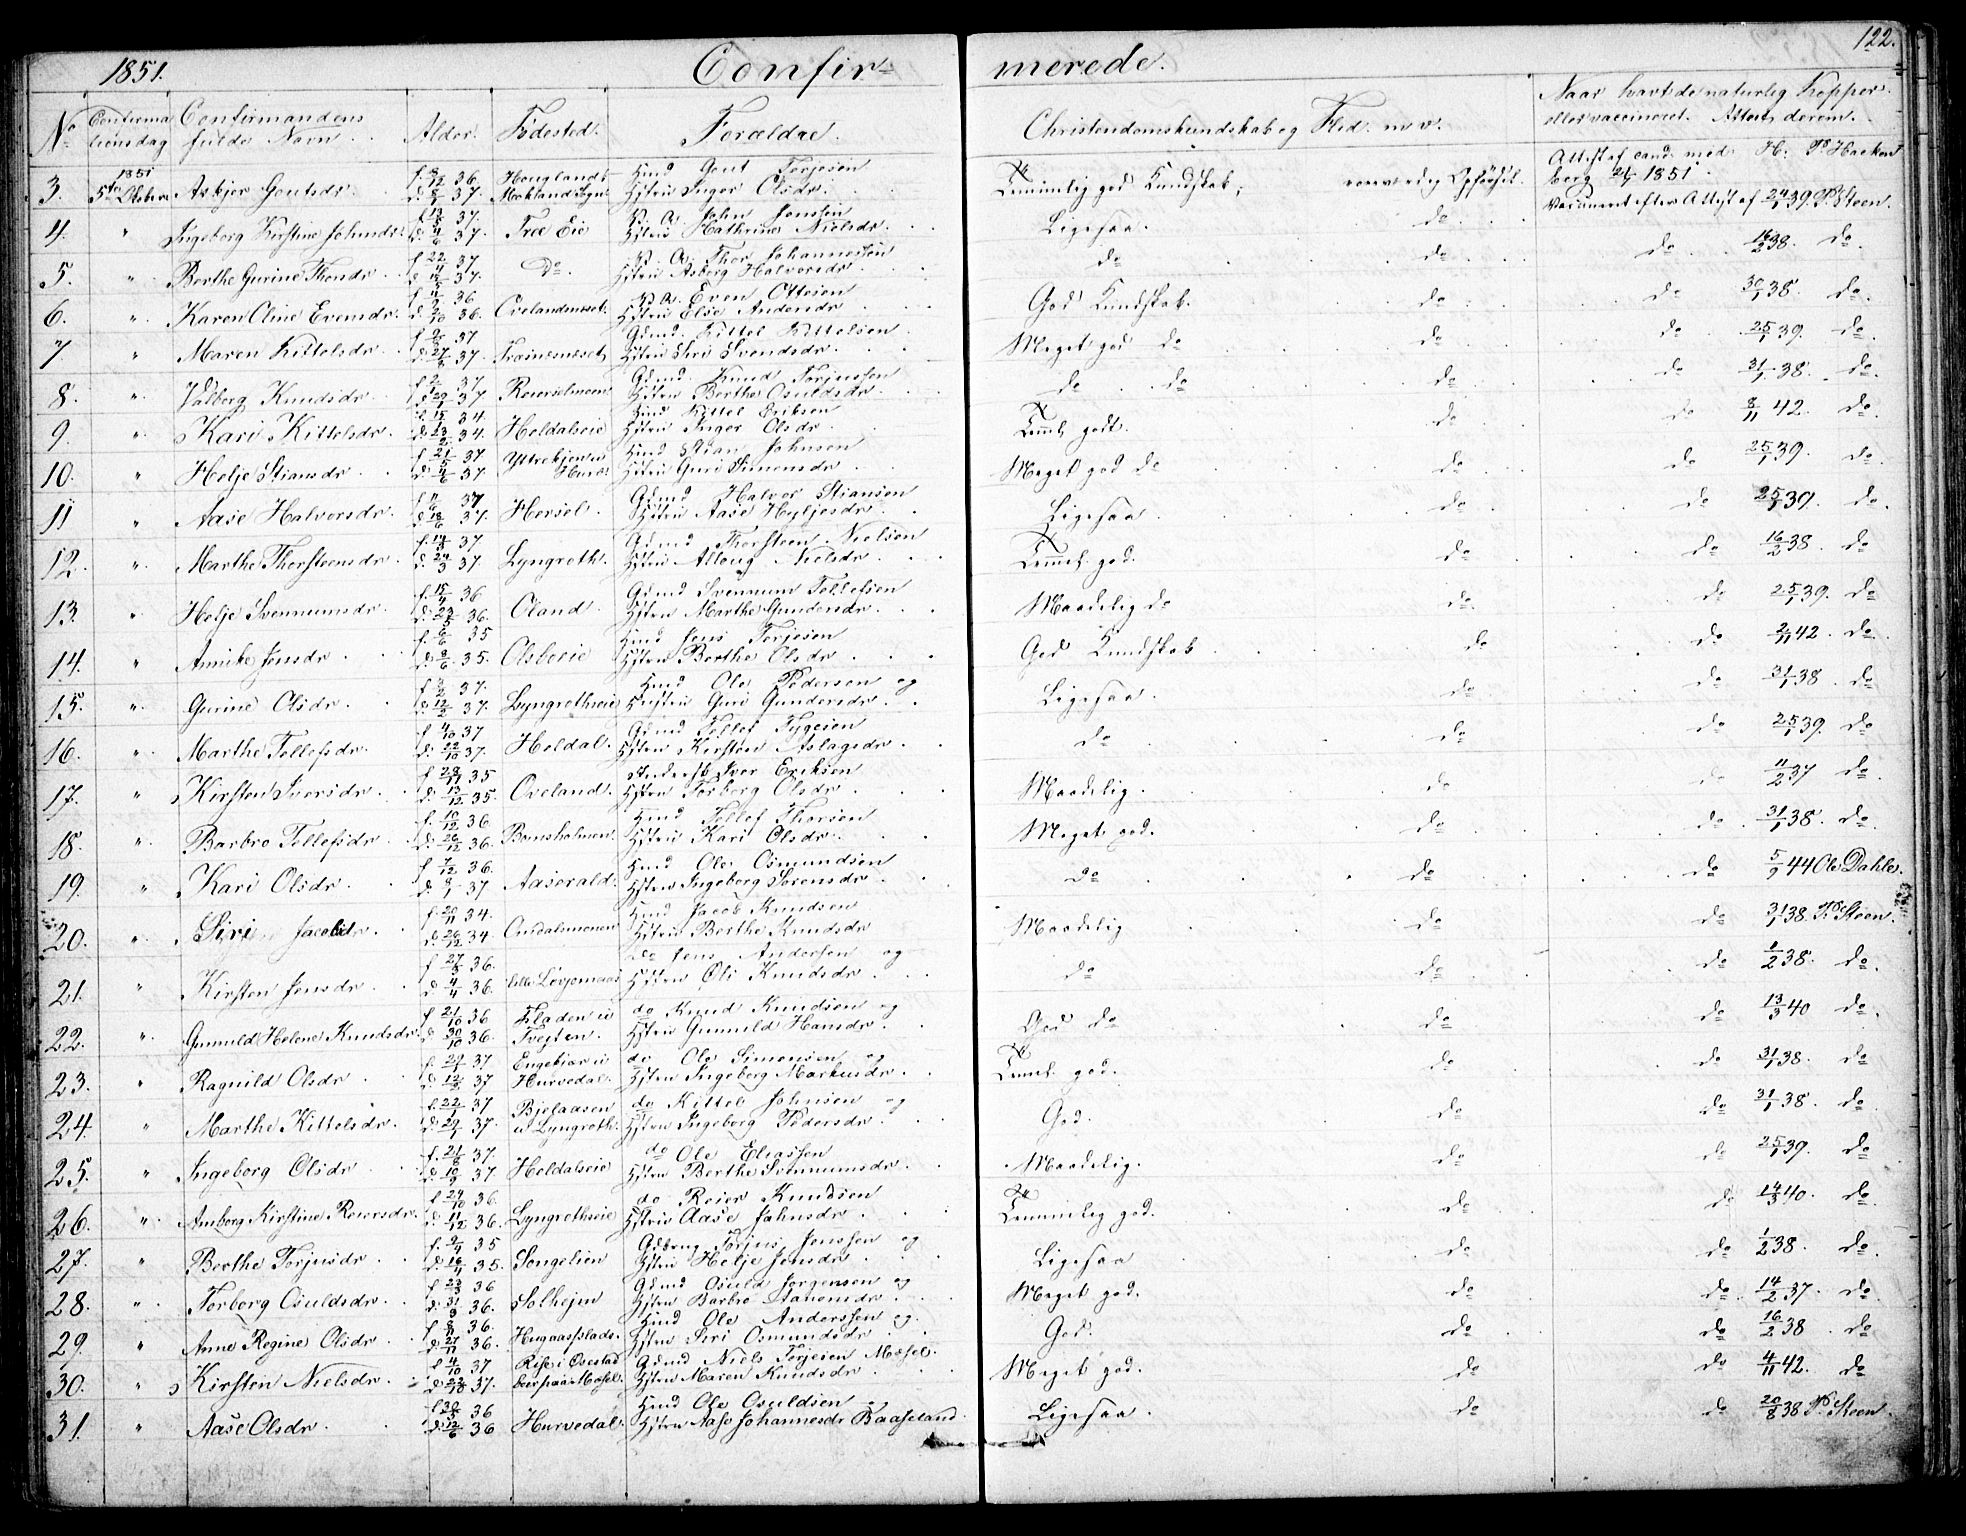 1851. Confir- merede. 122.
No Confirma tionsdag Confirmandens fulde Navn Alder. Fødested. Forældre. Christendomskundskab og Flid. m. v. Naar hvart de naturlig Kopper eller vaccineret. Attest derom.
3. 1851 5te Octbr Askjer Goutsdr. 36. 37. Houglands Moklands Sogn Huusmd Gout Torjesen Hstru Inger Olsdr. Temmelig god Kundskab, Attest af cand. med. H. berg 1851.
4. " Ingeborg Kirstine Johnsdr. 37. 37. Træ Eie John Jensen Hstru Kathrine Nielsdr. Ligesaa. do Vaccineret efter Attest af 24/1 39. P. Steen.
5. " Berthe Gurine Thorsdr. f. 22/4 37 37. do. Thor Johannessen Hstru Asborg Halvorsdr. do do do 16/2 38. do
6. " Karen Oline Evensdr. 36 36. Even Ottesen Hstru Else Andersdr. God Kundskab. do do 30/1 38. do
7 " Maren Kittelsdr. 37 37. Gdmd. Kittel Kittelsen Hstru Siri Svendsdr. Meget god do do do 25/1 39. do
8. " Valborg Knudsdr. 37 37 Gdmd. Knud Torjussen Hstru Berthe Osuldsdr. do do do do 31/1 38. do
9. " Kari Kittelsdr. 34. 34. Holdalseie Hmd Kittel Eriksen Hstru Inger Olsdr. Teml. godt. do do 8/11 42. do
10. " Helje Stiansdr. 37 37 Hmd Stian Johnsen Hstru Guri Simonsdr. Meget god do do do 25/1 39. do
11 " Aase Halvorsdr. 37 37. Hersel. Gdmd Halvor Stiansen Hstru Aase Hyljesdr. Ligesaa. do do 25/1 39. do
12. " Marthe Thorsteensdr. 37 37. Lyngroth. Gdmd Thorsteen Nielsen Hstru Alloug Nielsdr. Temel. god. do do 16/2 38. do
13. " Helje Svennumsdr. f. 15/4 36 36. Oland. Gdmd Svennum Tellefsen Hstru Marthe Gundersdr. Maadelig do do do 25/1 39. do
14. " Annike Jensdr. 35 35. Olsboeie Hmd Jens Torjesen Hstru Berthe Olsdr. God Kundskab do do 2/11 42. do
15. " Gurine Olsdr. 37. 37. Lyngrotheie Hmd Ole Pedersen og Hustru Guri Gundersdr. Ligesaa. do do 31/1 38. do
16. " Marthe Tellefsdr. f 4/10 37 d. 22/10 37. Holdal. Gdmd Tellef Tygesen Hstru Kirsten Aslagsdr. do do do 25/1 39. do
17. " Kirsten Iversdr. 35 d. 13/12 35. Oveland. Iver Eriksen Hstru Torborg Olsdr. Maadelig. do do 11/2 37 do
18. " Barbro Tellefsdr. f. 10/12 36 d. 26/12 36. Bomsholmen. Hmd Tellef Thorsen Hstru Kari Olsdr. Meget god. do do. 31/1 38. do
19. " Kari Olsdr. f 7/12 36. 37 Aaserald. Hmd Ole Osmundsen Hstru Ingeborg Sørensdr. do do do 5/9 44 Ole Dahle.
20. " Siri Jacobsdr. f. 20/11 34. d. 26/12 34. Hmd Jacob Knudsen Hstru Berthe Knudsdr Maadelig do do 31/1 38. P. Steen.
21. " Kirsten Jensdr. 36. d. 4/4 36. lille do Jens Andersen og Hstru Oli Knudsdr. do do do 1/2 38. do
22. " Gunuld Helene Knudsdr. f 21/10 36 d 30/10 36. Fladen u Trejten. do Knud Knudsen og Hstru Gunuld Hansdr. God do do do 13/3 40 do
23. " Ragnild Olsdr. 37 37 Engekjær u Hurvedal. do Ole Simonsen og Hstru Ingeborg Markusdr. Temel. god. do do 31/1 38. do
24. " Marthe Kittelsdr. f. 22/1 37 d. 29/1 37. Bjelaasen u Lyngroth. do Kittel Johnsen og Hstru Ingeborg Pedersdr. God. do do 31/1 38. do
25. " Ingeborg Olsdr. f. 21/8 37. d. 10/9 37 Holdalseie do Ole Eliassen Hstru Berthe Svennumsdr. Maadelig. do do 25/1 39. do
26. " Amborg Kirstine Reiersdr. f 29/10 36. d. 11/12 36. Lyngrotheie do Reier Knudsen Hstru Aase Jahnsdr. Temmelig god. do do 14/3 40. do
27. " Berthe Torjusdr. 35 35. Songelien Gdbrug. Torjus Jenssen og Hstru Helje Jensdr. Ligesaa do do 1/2 38. do
28. " Torborg Osuldsdr. f 23/3 36 d. 31/3 36. Solhejm Gdmd Osuld Jørgensen og Hstru Barbro Aanonsdr. Meget god. do do 14/2 37. do
29. " Anne Regine Olsdr. 36. d. 27/11 36. Hugaasplads. Hmd Ole Anderssen og Hstru Siri Osmundsdr. God. do do 16/2 38. do
30. " Kirsten Nielsdr. f 4/10 37 37. Rise i Øiestad boer paa Mosel. Gdmd Niels Terjesen Mosel. Hstru Maren Knudsdr. Meget god. do do 4/11 42. do
31. " Aase Olsdr. 36 36 Hurvedal. Hmd Ole Osuldsen og Hstru Aase Johannesdr Baaseland. Ligesaa. do do 20/8 38 P. Steen.